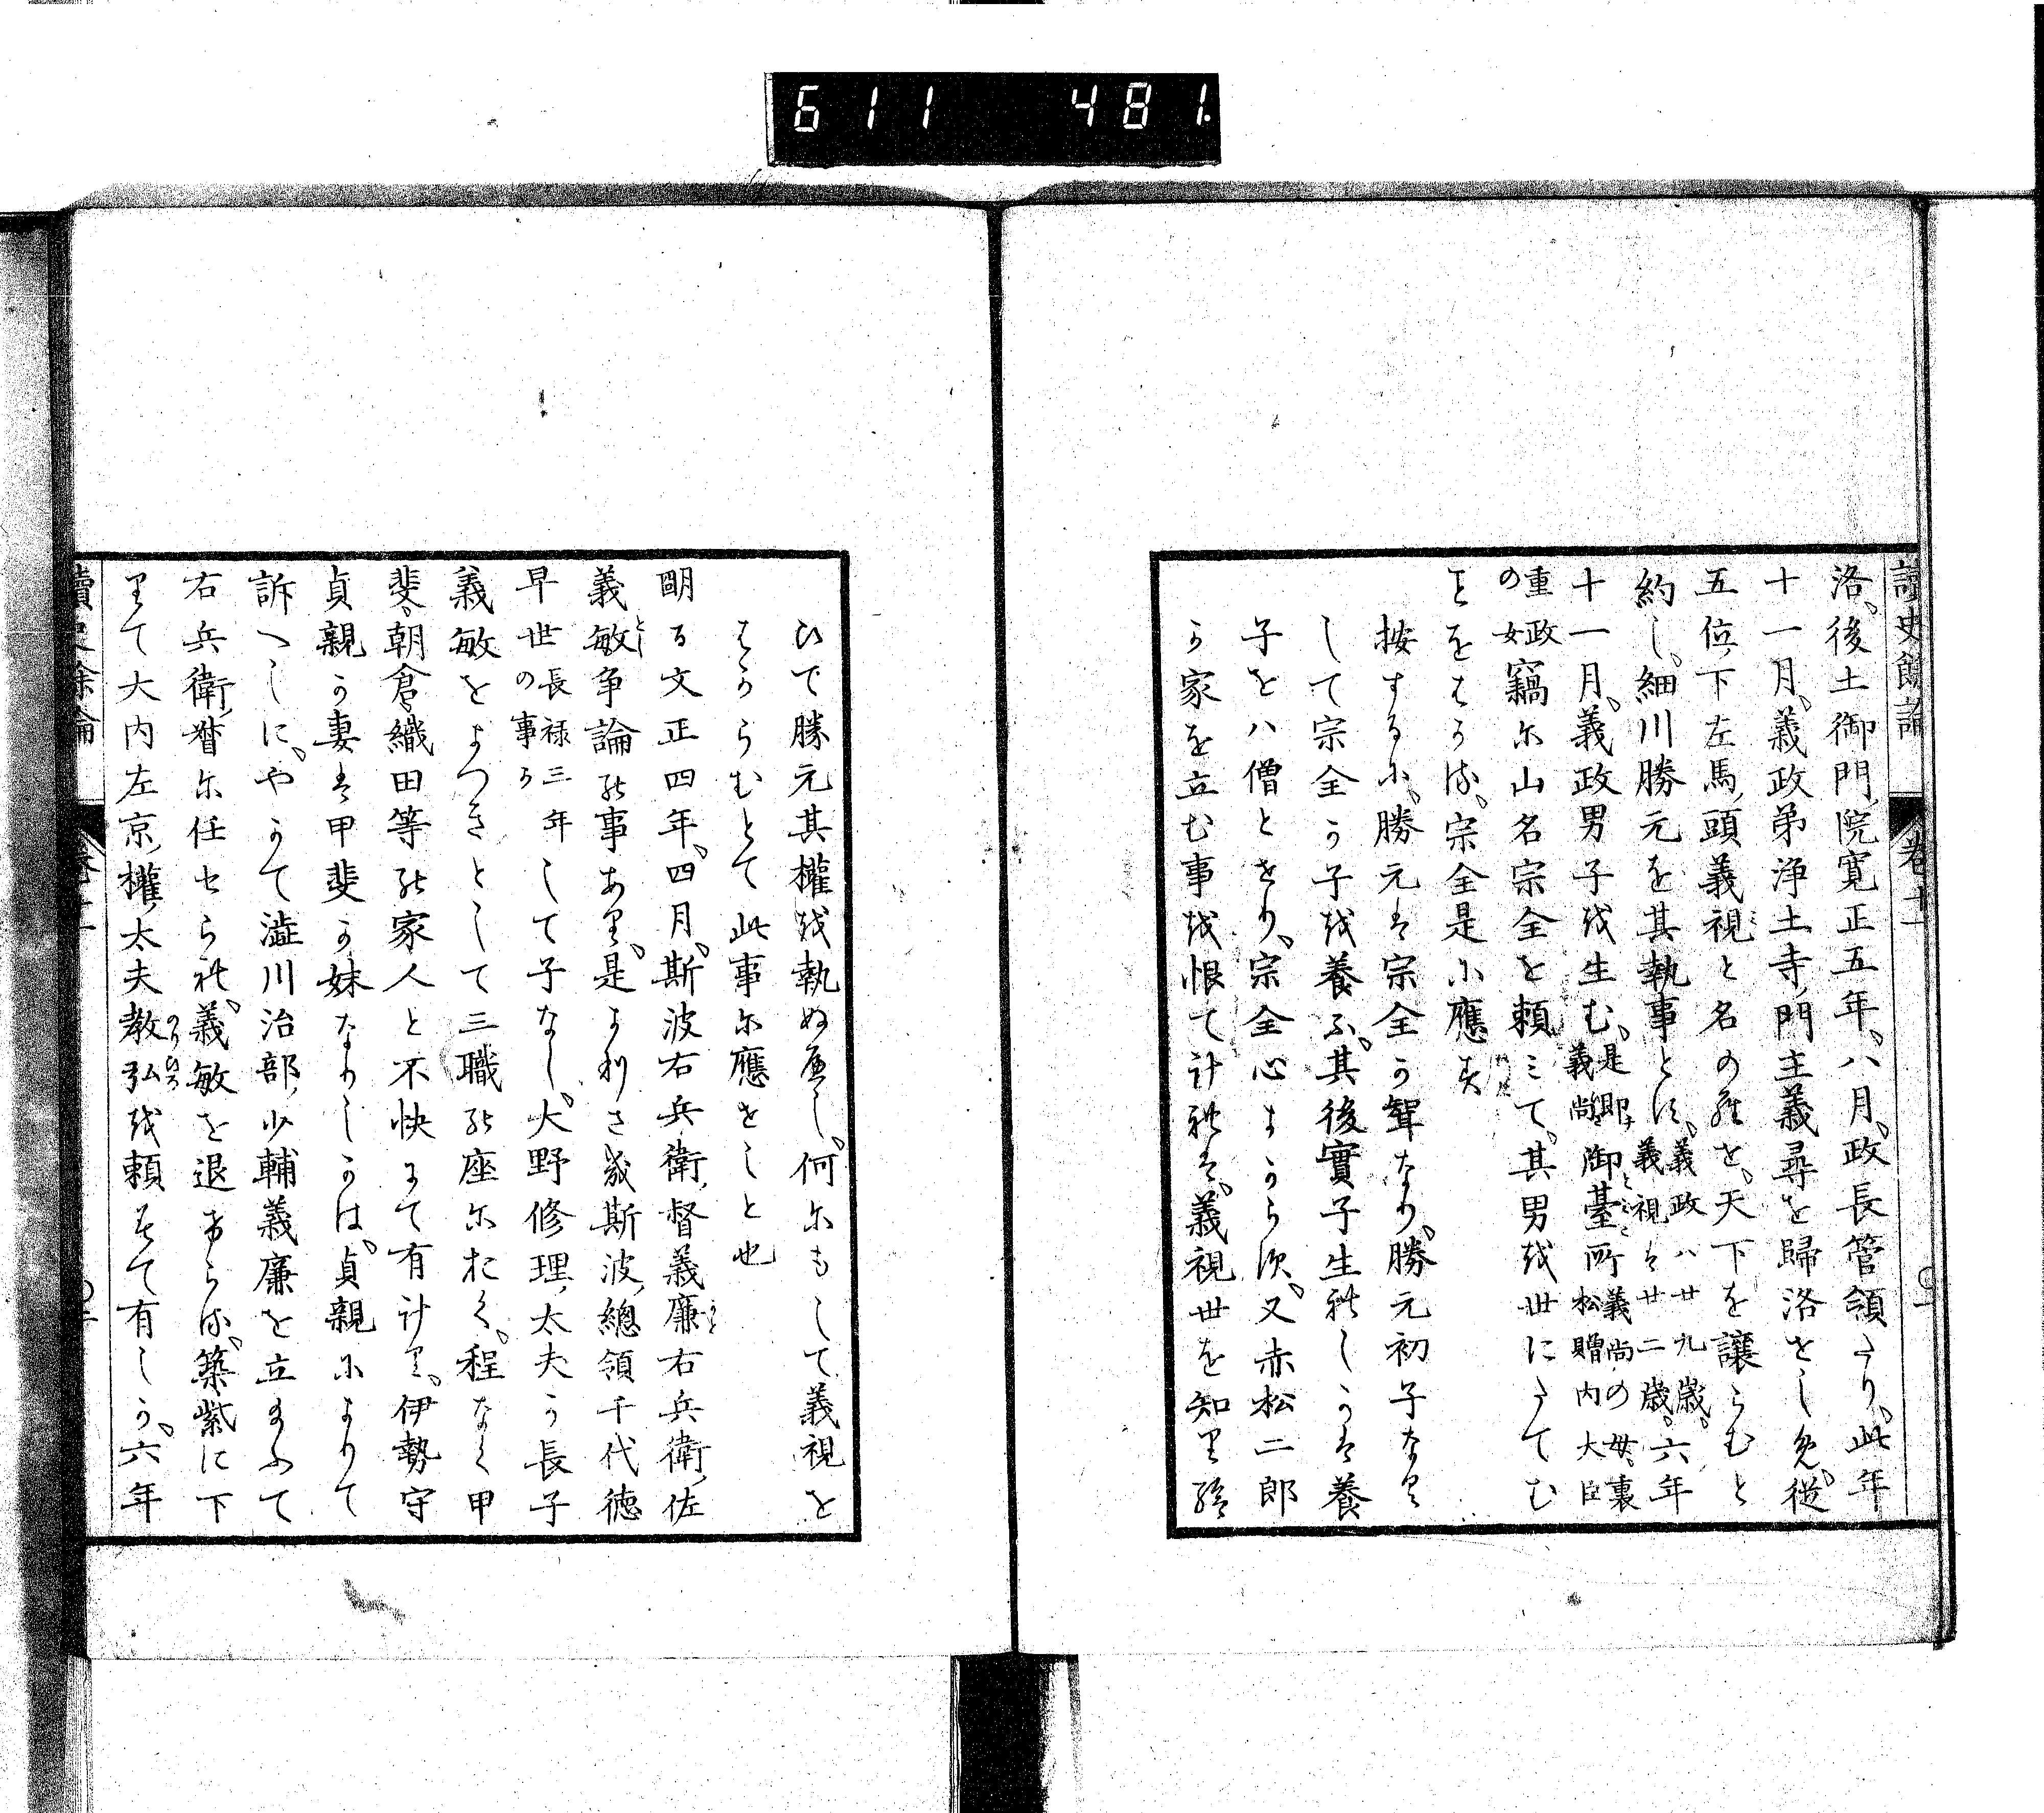 611 481.
讀史餘論 卷十一
洛、後土御門院寛正五年、八月、政長管領たり、此年
十一月、義政弟浄土寺門主義尋を歸洛せしめ、從
五位下左馬頭義視と名のらせ、天下を譲らむと
約し、細川勝元を其執事とす、義政ハ廿九歳、義視は廿二歳、六年
十一月、義政男子を生む、是即義尚、御臺所義尚の母、裏松贈内大臣
重政の女竊に山名宗全を頼みて、其男を世にたてむ
ことをはかる、宗全是に應す
按するに、勝元は宗全か聟なり、勝元初子なく
して宗全か子を養ふ、其後實子生れしかは養
子をハ僧とせり、宗全心よからす、又赤松二郎
か家を立む事を恨て計れは、義視世を知り給
ひて勝元其權を執ぬへし、何にもして義視を
はからむとて此事に應せしと也
明る文正四年、四月、斯波右兵衛督義廉右兵衛佐
義敏争論の事あり、是よりさき斯波總領千代徳
早世長禄三年の事かして子なし、大野修理太夫か長子
義敏をよつきとして三職の座におく、程なく甲
斐、朝倉、織田等の家人と不快にて有計り、伊勢守
貞親か妻は甲斐か妹なりしかは、貞親によりて
訴へしに、やかて澁川治部少輔義廉を立給ふて
右兵衛督に任せられ、義敏を退けらる、築紫に下
りて大内左京權太夫教弘を頼みて有しか、六年
讀史餘論